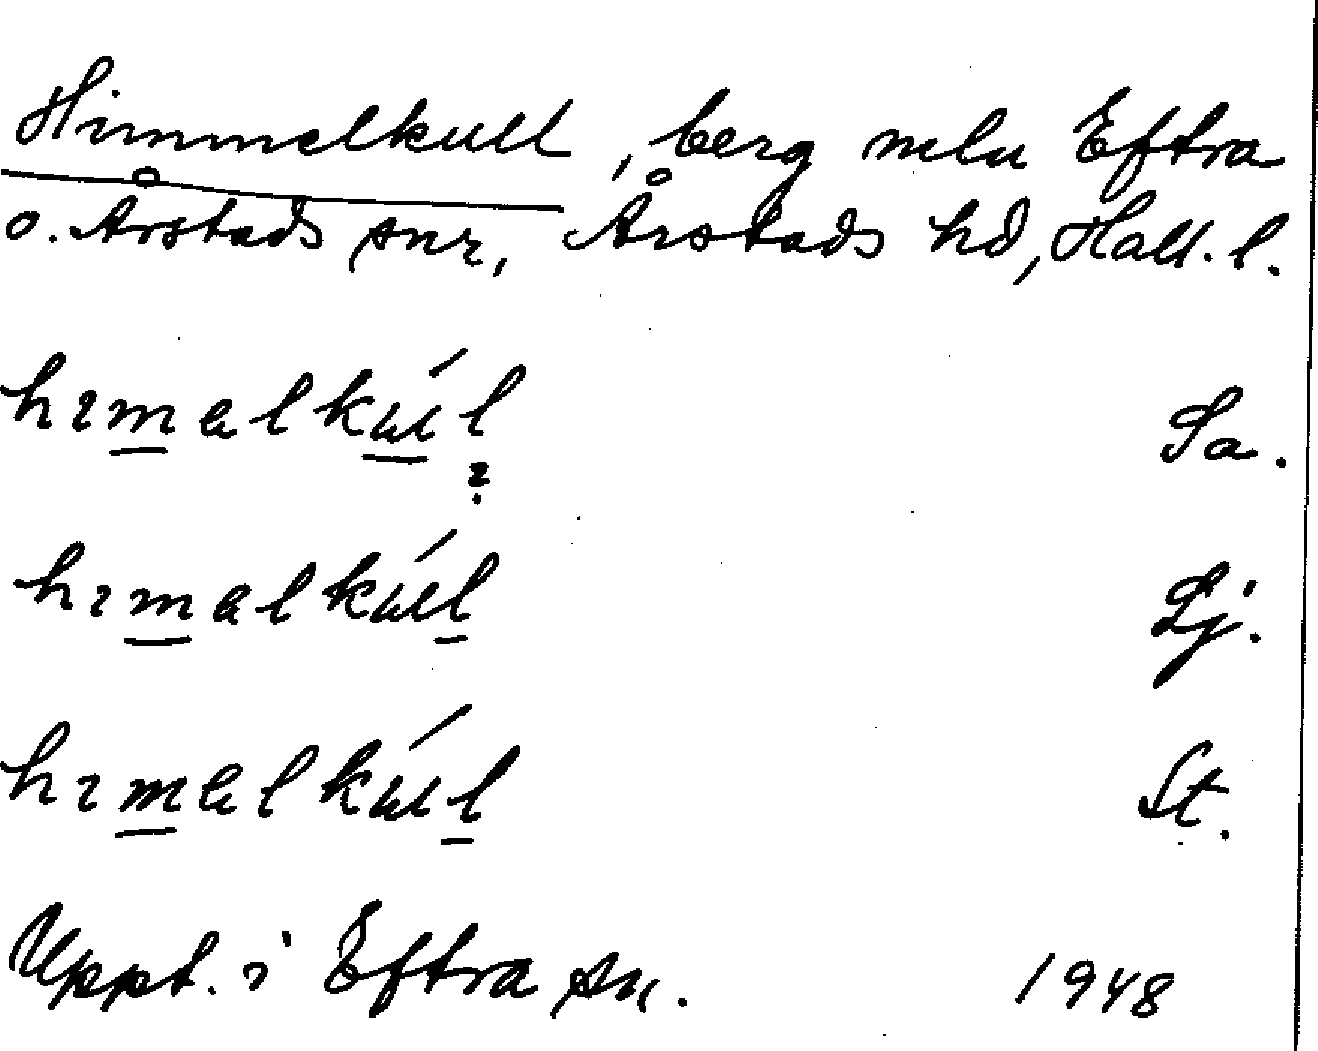 Himmelkull, berg mlu Eftra
o. Årstads snr, Årstads hd, Hall. l.
hımalkúl Sa.
?
hımalkúl Lj.
hımalkúl St.
Uppt. i Eftra sn. 1948